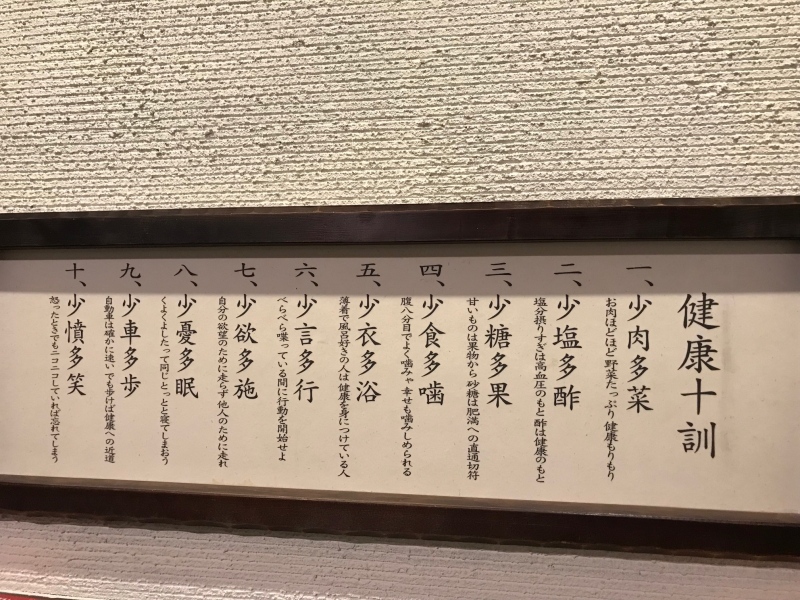 健康十訓
一、少肉多菜
お肉ほどほど野菜たっぷり健康もりもり
二、少塩多酢
塩分摂りすぎは高血圧のもと酢は健康のもと
三、少糖多果
甘いものは果物から砂糖は肥満への直通切符
四、少食多噛
腹八分目でよく噛みゃ幸せも噛みしめられる
五、少衣多浴
薄着で風呂好きの人は健康を身につけている人
六、少言多行
べらべら喋っている間に行動を開始せよ
七、少欲多施
自分の欲望のために走らず他人のために走れ
八、少憂多眠
くよくよしたって同じとっとと寝てしまおう
九、少車多歩
自動車は確かに速いでも歩けば健康への近道
十、少憤多笑
怒ったときでもニコニコしていれば忘れてしまう